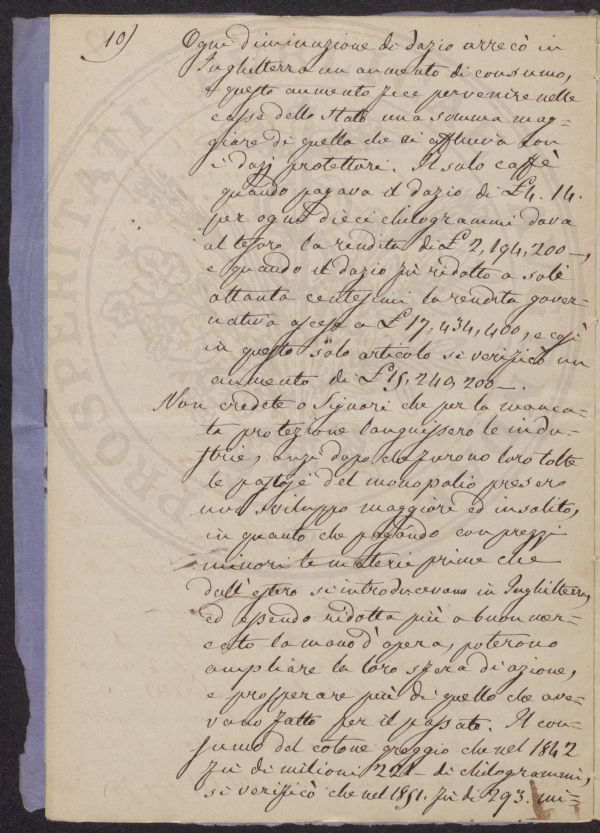 10)
Ogni diminuzione di dazio arrecò in
Inghilterra un aumento di consumo,
e questo aumento fece pervenire nelle
casse dello Stato una somma mag=
giore di quella che vi affluiva con
i dazj protettori. Il solo caffè
quando pagava il dazio di £ 4. 14.
per ogni dieci chilogrammi dava
al tesoro la rendita di £ 2,194,200—,
e quando il dazio fù ridotto a soli
ottanta centesimi la rendita gover=
nativa ascese a £ 17,434,400, e così
in questo solo articolo si verificò un
aumento di £ 15,240,200—.
Non credete o Signori che per la manca=
ta protezione languissero le indu=
strie, anzi dopo che furono loro tolte
le pastoje del monopolio presero
uno sviluppo maggiore ed insolito,
in quanto che pagando con prezzi
minori le materie prime che
dall'estero si introducevano in Inghilterra,
ed essendo ridotta più a buon mer=
cato la mano d'opera, poterono
ampliare la loro sfera di azione,
e prosperare più di quello che ave=
vano fatto per il passato. Il con=
sumo del cotone greggio che nel 1842
fù di milioni 221— di chilogrammi,
si verificò che nel 1851. fù di 293. mi=
PROSPERITATI